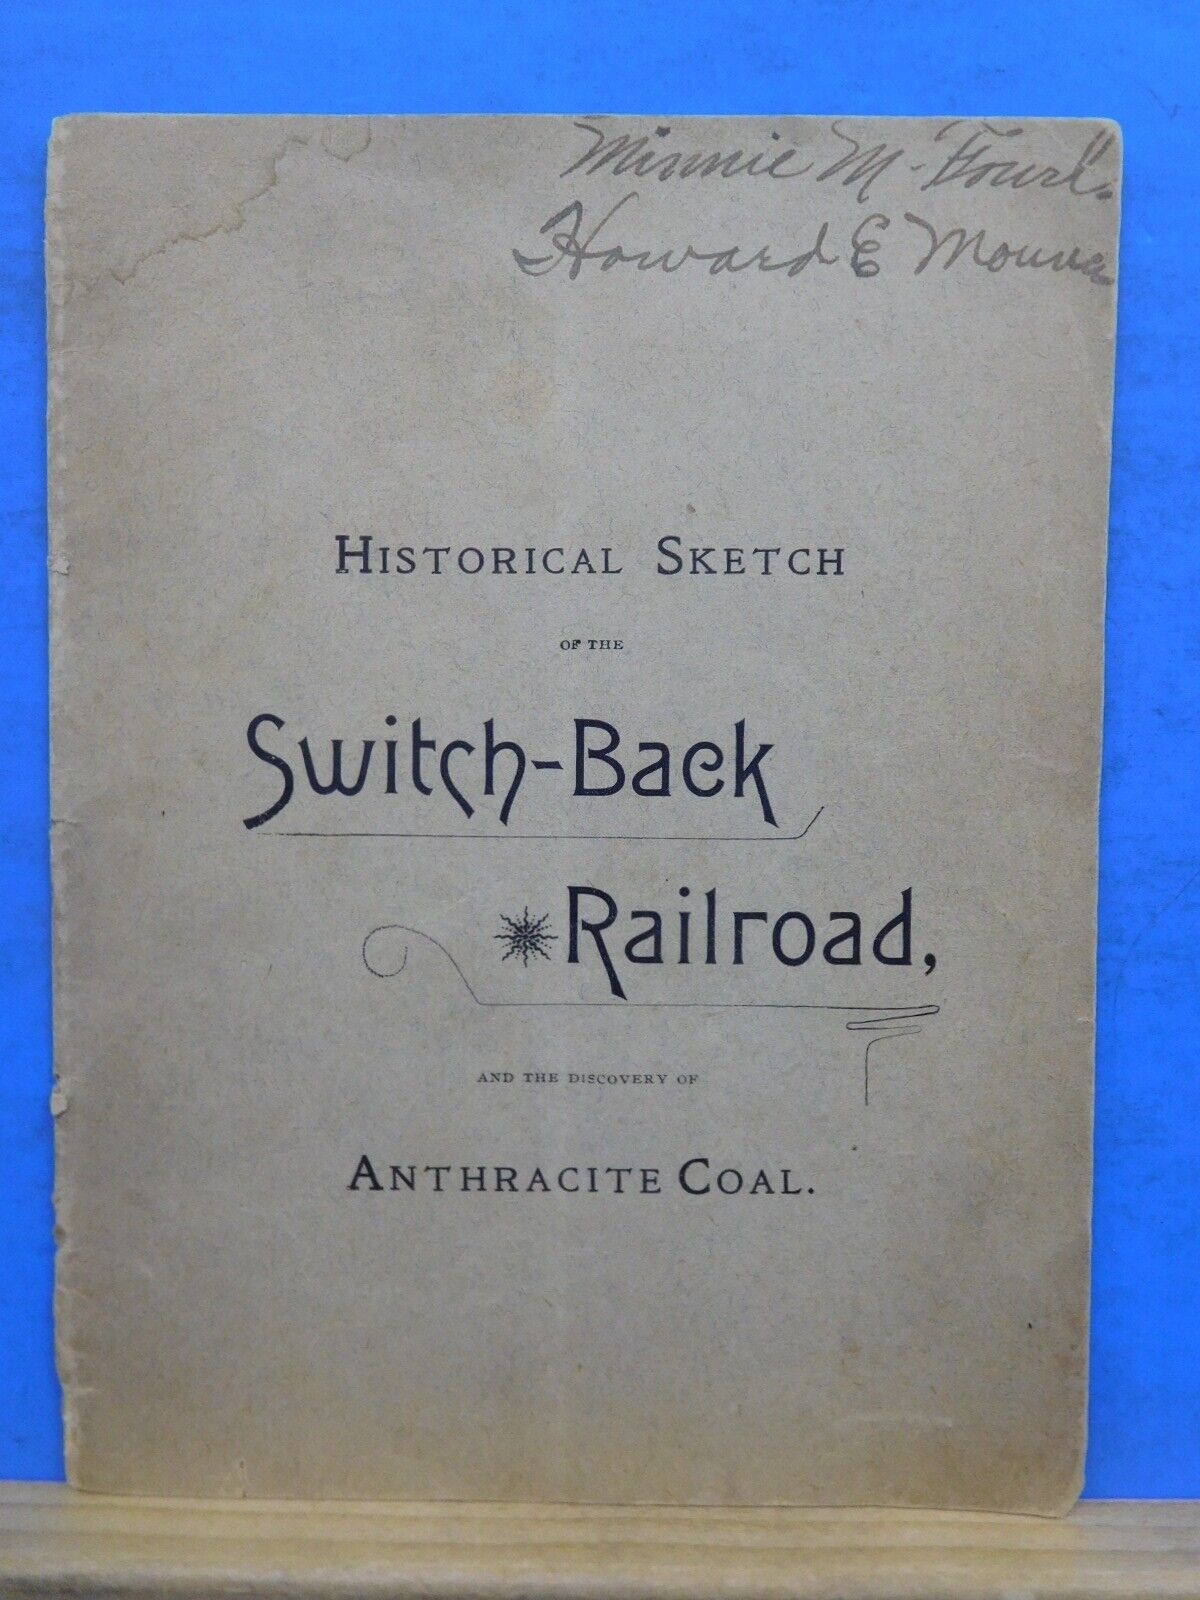 Minnie M.
Howard E
HISTORICAL SKETCH
OF THE
Switch-Back
Railroad,
AND THE DISCOVERY OF
ANTHRACITE COAL.